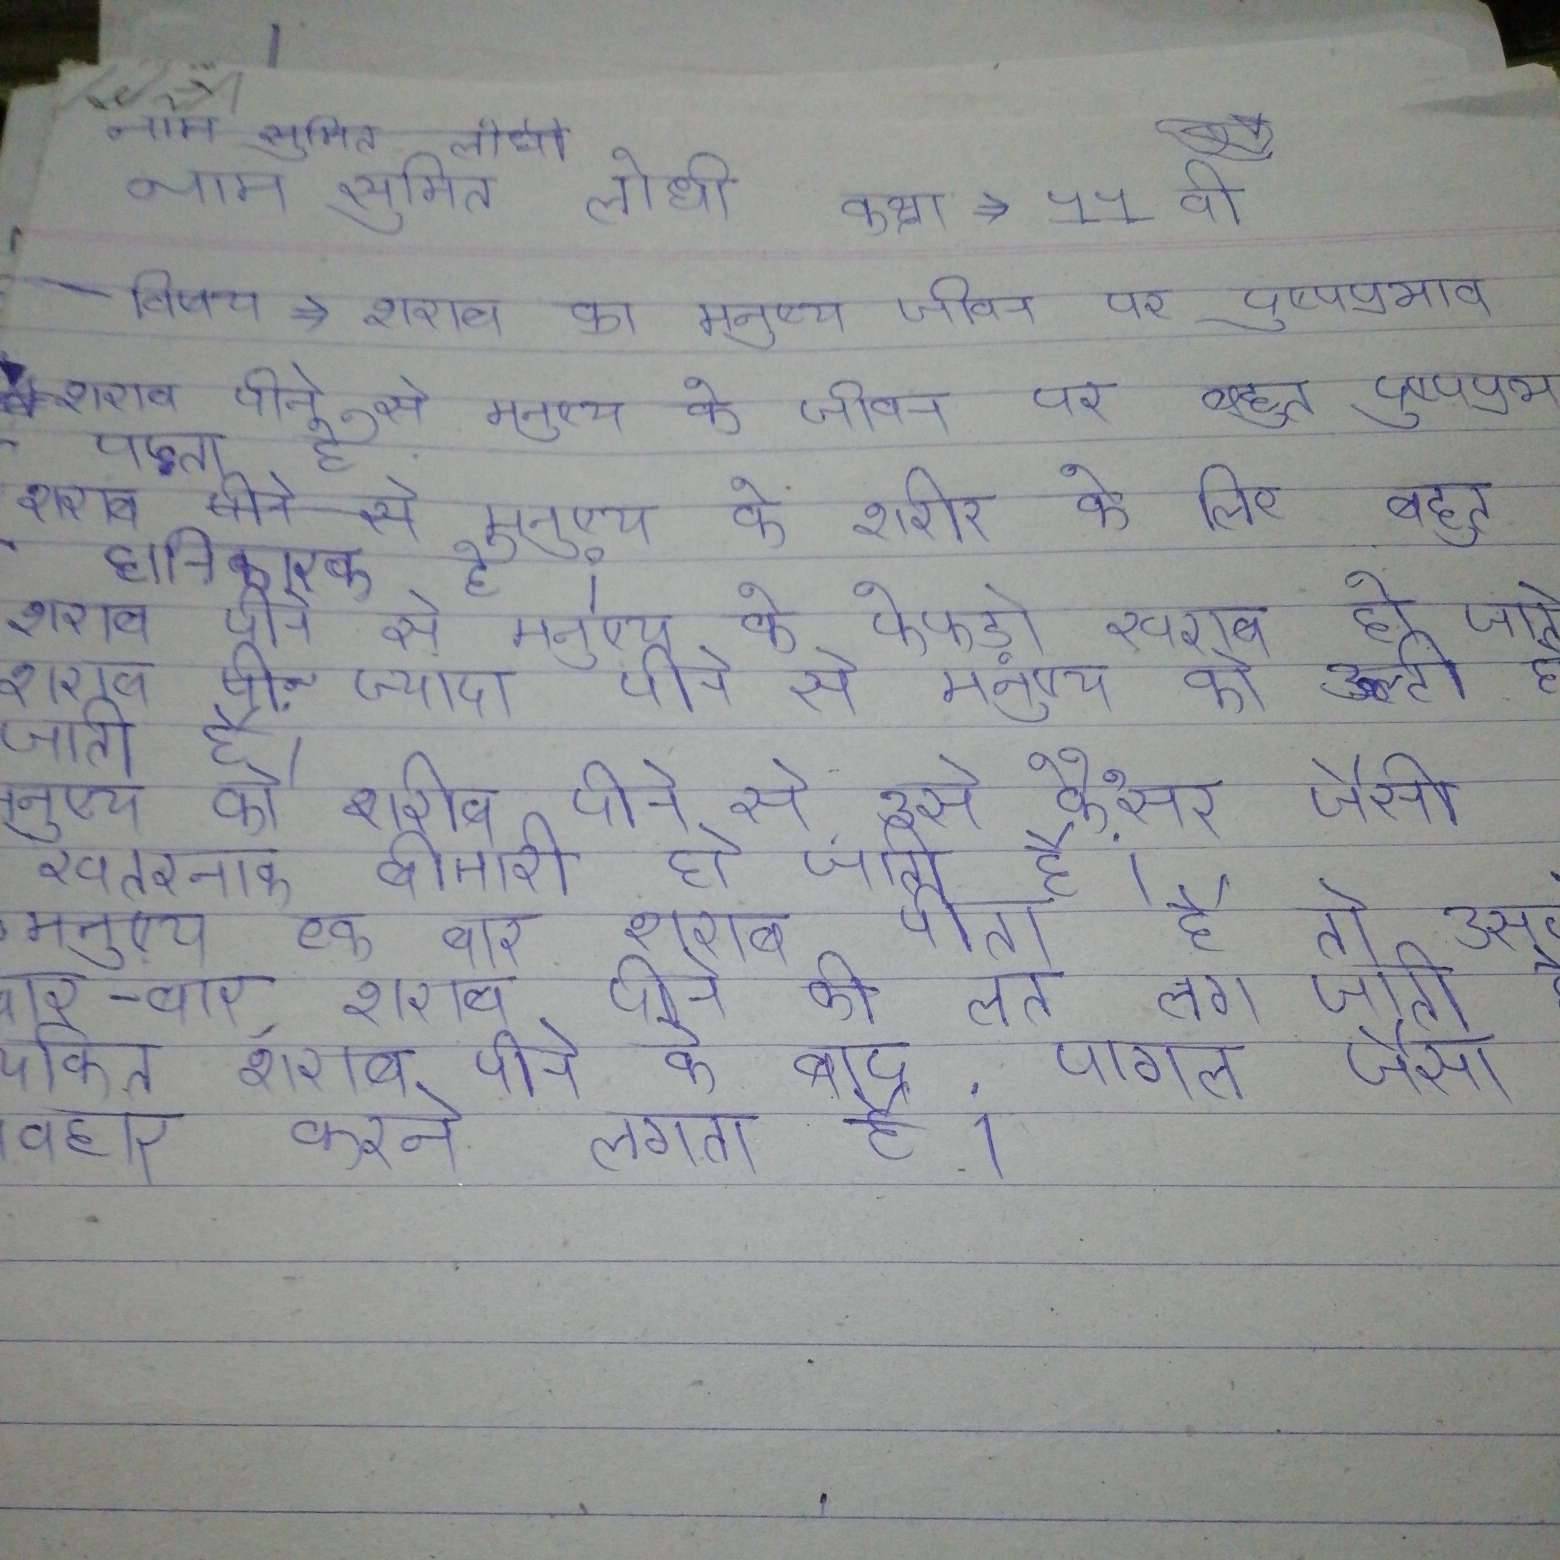 नाम सुमित लोधी
नाम सुमित लोधी कक्षा ⇒ 11 वी
विषय ⇒ शराब का मनुष्य जीवन पर दुष्पप्रभाव
शराब पीने से मनुष्य के जीवन पर बहुत दुष्पप्रभ
पढता है
शराब पीने से मनुष्य के शरीर के लिए बहुत
हानिकारक है।
शराब पीने से मनुष्य के फेफड़ो खराब हो जाते
शराब पीन ज्यादा पीने से मनुष्य को उल्टी हो
जाती है।
मनुष्य को शरीब पीने से उसे कैंसर जैसी
खतरनाक बीमारी हो जाती है।
मनुष्य एक बार शराब पीता है तो उसके
बार-बार शराब पीने की लत लग जाती है
यकित शराब पीने के बाद पागल जैसा
वहार करने लगता है।